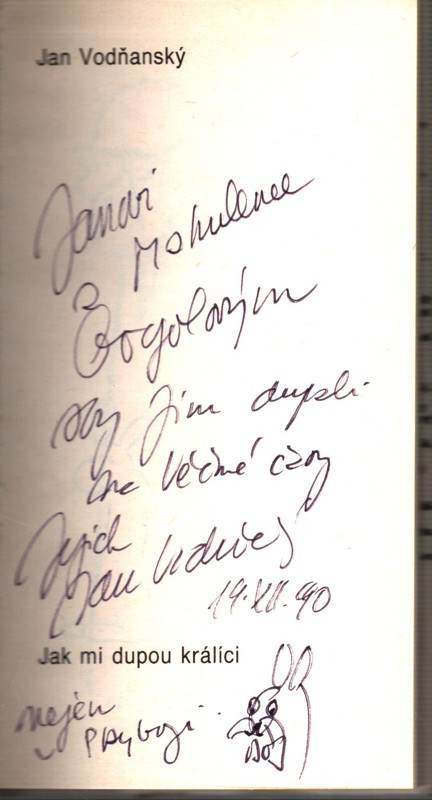 Jan Vodňanský
Janovi
a Mahulence
Gogolovým
aby jim dupali
na věčné časy
Jejich
Jan Vodňanský
19.XII.90
Jak mi dupou králíci
nejen
v playboyi